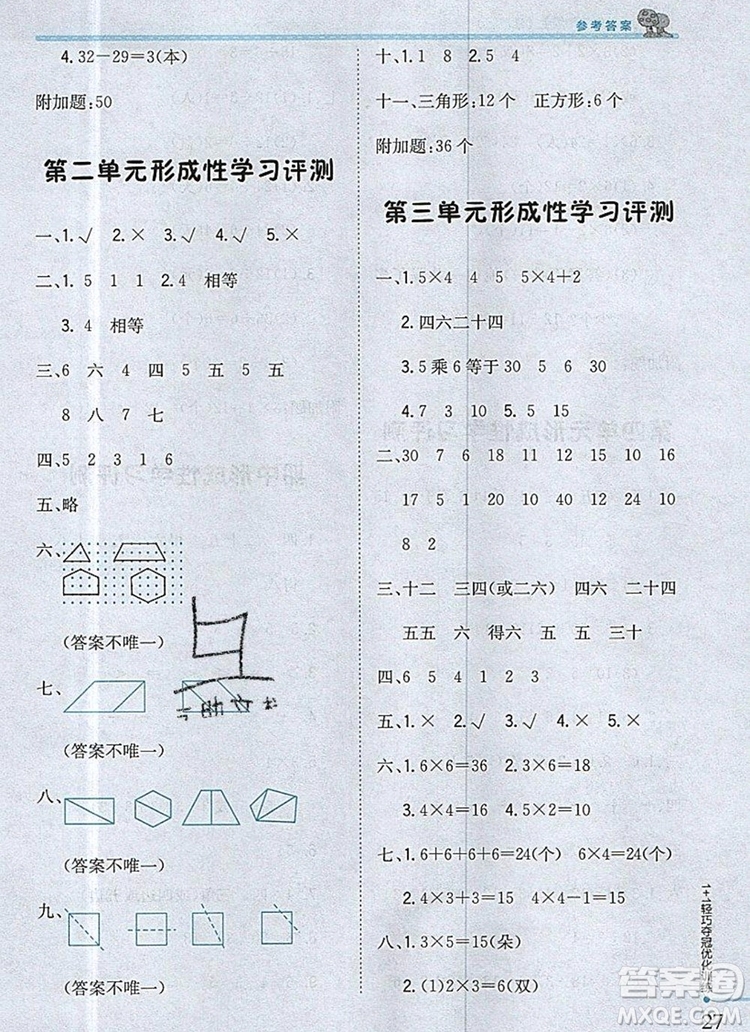 参考答案
4.32-29=3(本)
附加题:50
第二单元形成性学习评测
一、1.√ 2.× 3.√ 4.√ 5.×
二、1.5 1 1 2.4 相等
3.4 相等
三、6 六 4 四 5 五 5 五
8 八 7 七
四、5 2 3 1 6
五、略
六、
(答案不唯一)
七、
(答案不唯一)
八、
(答案不唯一)
九、
十、1.1 8 2.5 4
十一、三角形:12个 正方形:6个
附加题:36个
第三单元形成性学习评测
一、1.5×4 4 5 5×4+2
2.四六二十四
3.5乘6等于30 5 6 30
4.7 3 10 5 2 10
二、30 7 36 9 12 16
17 5 21 24 20 15
8 2
三、十二 三四(或二六) 四六 二十四
五五 六 得六 五五 三十
四、6 5 4 1 2 3
五、1.× 2.√ 3.√ 4.× 5.×
六、1.6×6=36 2.3×6=18
3.4×4=16 4.5×2=10
七、1.6+6+6+6=24(个) 6×4=24(个)
2.4×3+3=15 4×4-1=15
八、1.3×5=15(朵)
2.(1)2×3=6(双)
1+1轻巧夺冠优化训练
27
答案圈
MXQE.COM